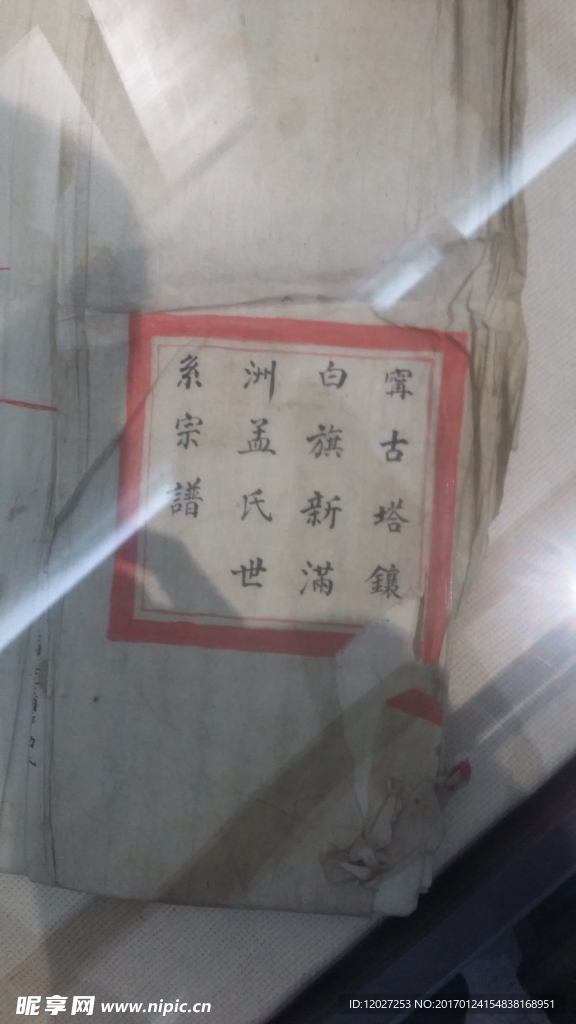 寗古塔鑲
白旗新滿
洲孟氏世
系宗譜
昵享网 www.nipic.cn
ID:12027253 NO:20170124154838168951